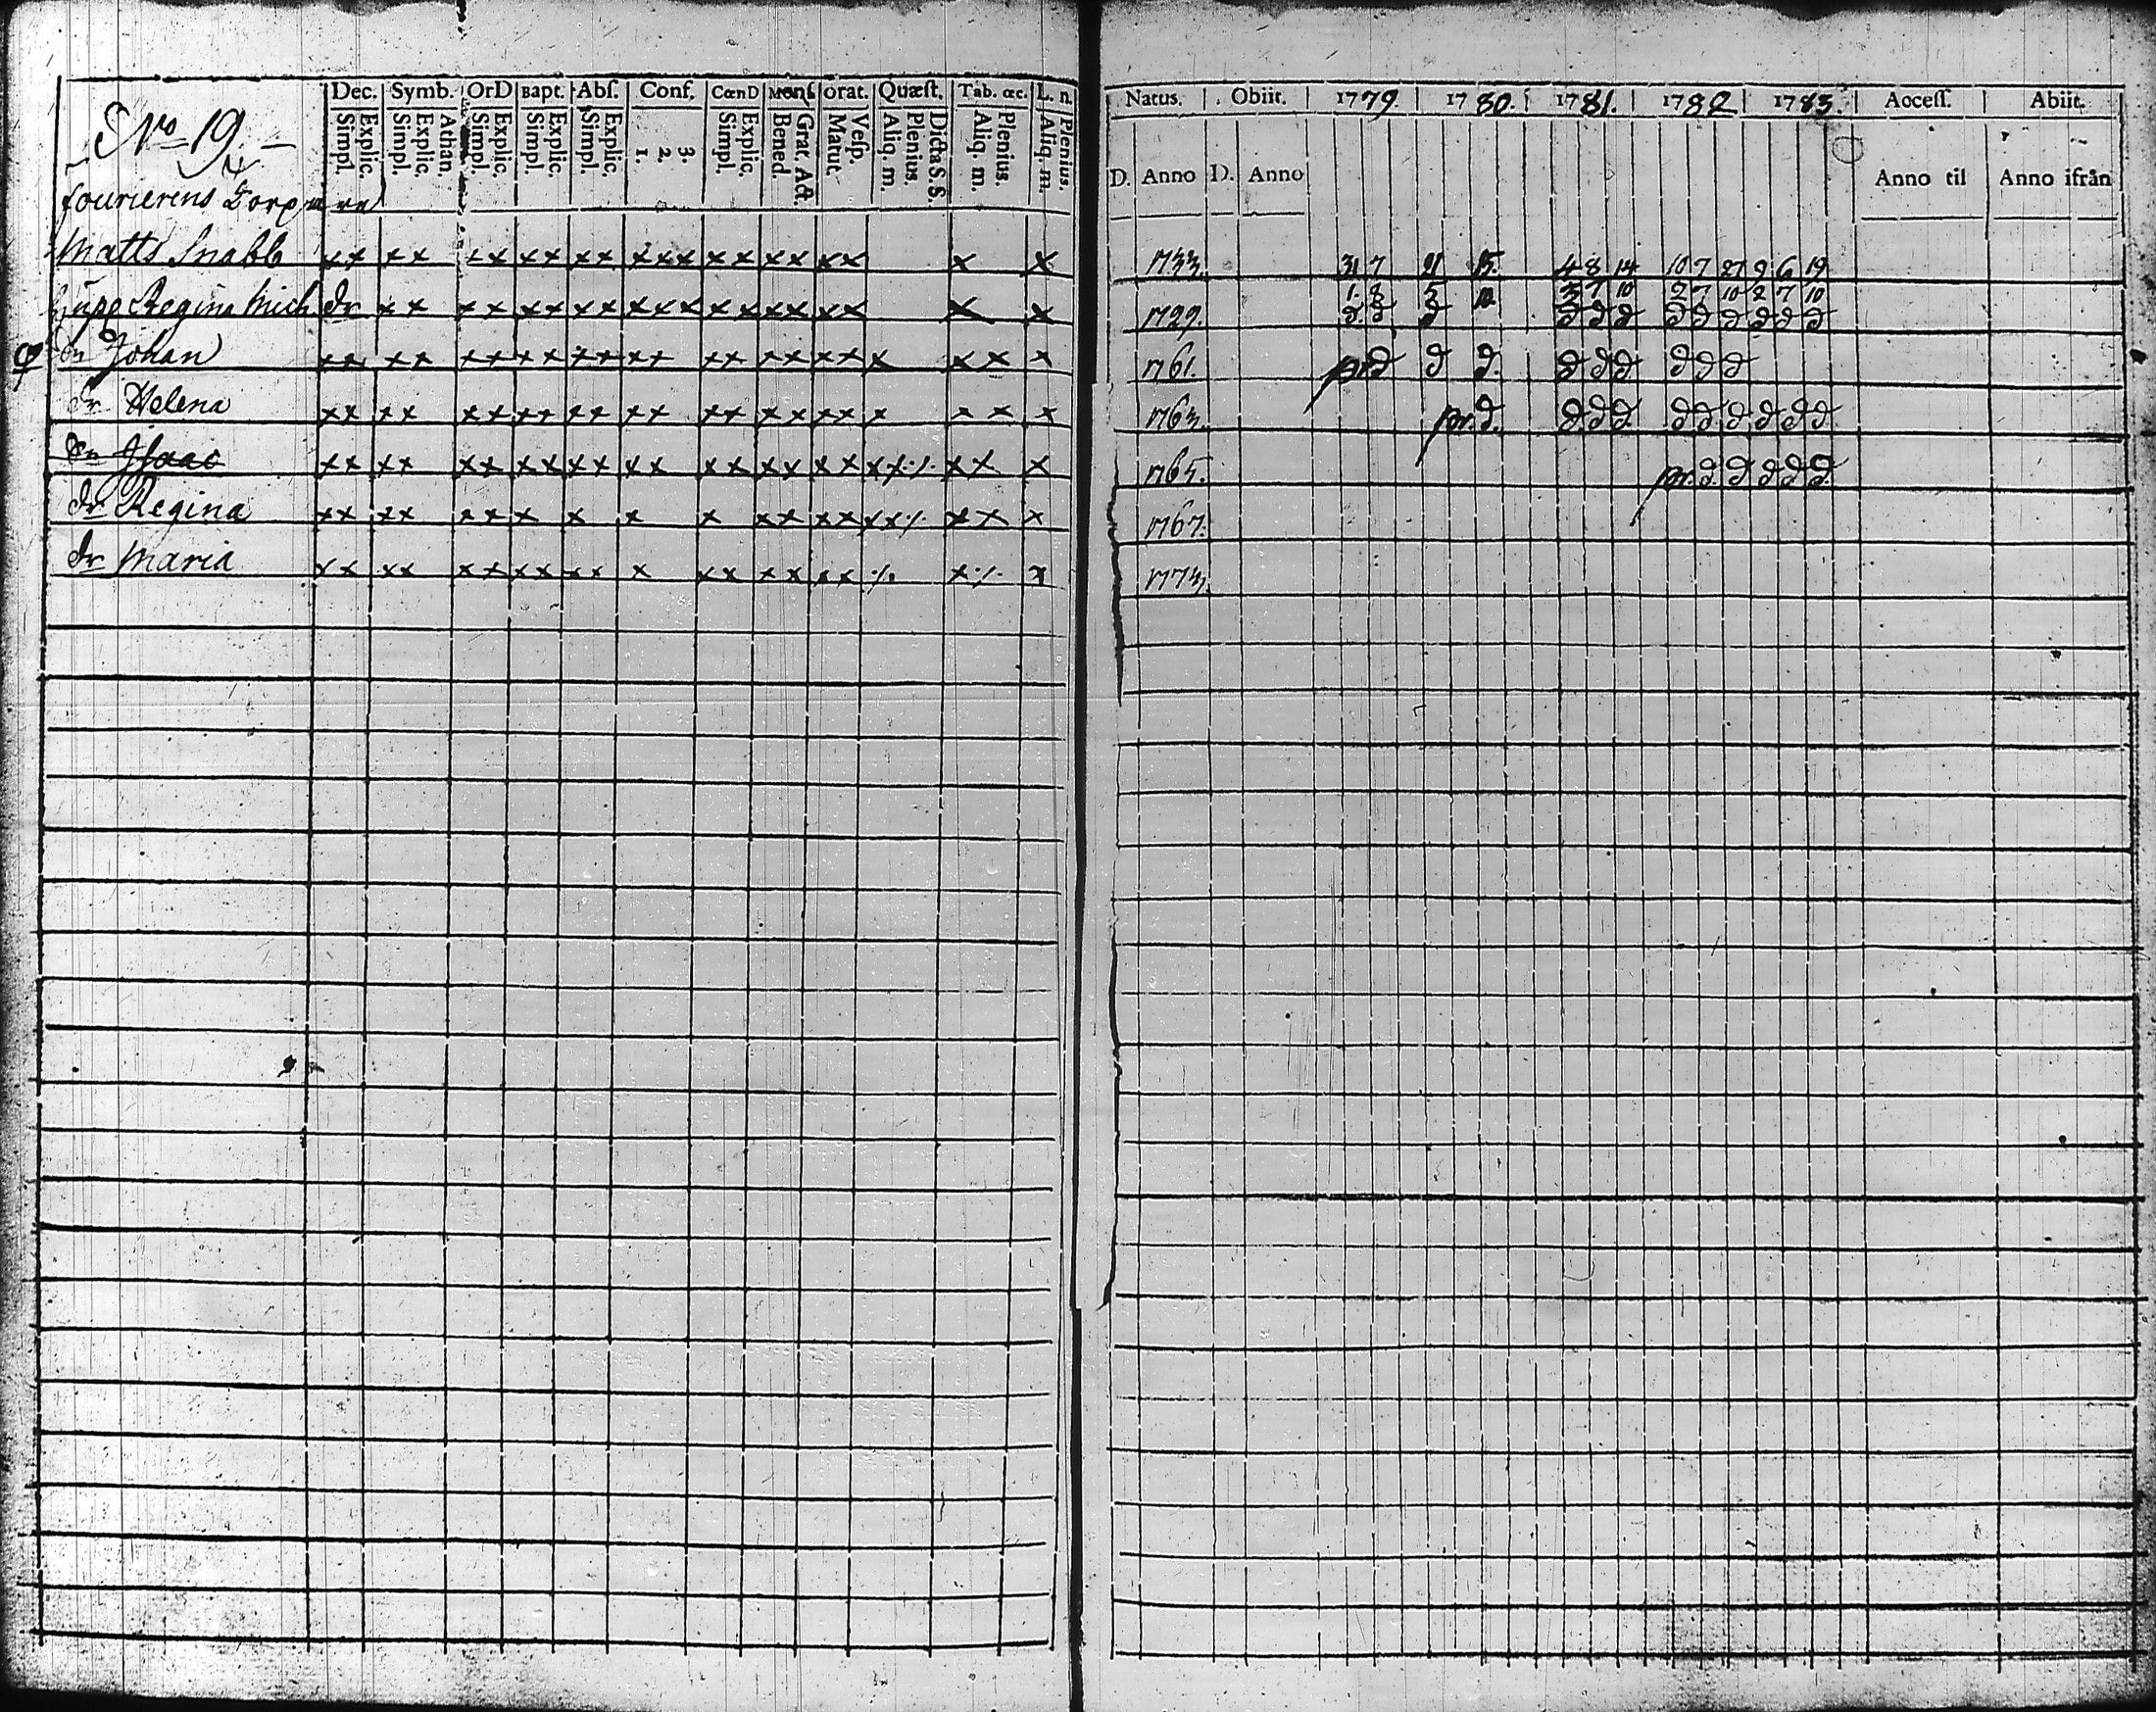 Dec. Symb. OrD Bapt. Abſ. Conf. CœnD Menſ. Orat. Quæſt. Tab. œc. L. n.
Simpl. Explic. Simpl. Explic. Athan. Simpl. Explic. Simpl. Explic. Simpl. Explic. 1. 2. 3. Simpl. Explic. Bened. Grat. Act. Matut. Veſp. Aliq. m. Plenius. Dicta S.S. Aliq. m. Plenius. Aliq. m. Plenius.
No 19
Matts Snabb x x x x x x x x x x x x x x x x x x x x x
Regina Mich dr x x x x x x x x x x x x x x x x x x
Johan x x x x x x x x x x x x x x x x x x x x x x
dr Helena x x x x x x x x x x x x x x x x x x x x x x
Isaac x x x x x x x x x x x x x x x x x x x x ./. x x x
dr Regina x x x x x x x x x x x x x x x x x ./. x x x
dr Maria x x x x x x x x x x x x x x x x x ./. x ./. x
Natus. Obiit. 1779 1780. 1781. 1782 1783. Acceſſ. Abiit.
D. Anno D. Anno Anno til Anno ifrån
1733. 31 7 21 15. 4 8 14 10 7 27 9 6 19
1. 8 5 10 3 7 10 2 7 10 2 7 10
1729. d d d d d d d d d d d d
1761. pr d d d. d d d d d d
1763. pr. d. d d d. d d d d d d
1765. pr. d. d d d d
1767.
1773.